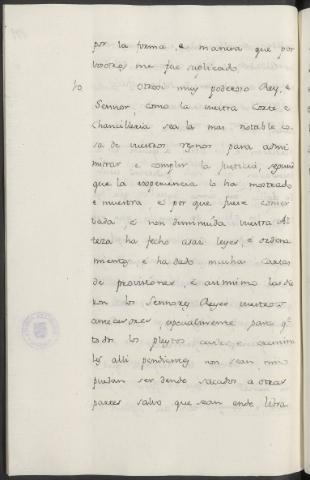 por la forma, e manera que por
vosotros me fue suplicado
10 Otrosi muy poderoso Rey, e
Sennor, como la vuestra Corte e
Chancilleria sea la mas notable co
sa de vuestros regnos para admi
nistrar e complir la Justicia, segunt
que la experiencia lo ha mostrado
e muestra, e por que fuese conser
vada, e non diminuida vuestra Al
teza ha fecho asaz leyes, e ordena
mientos, e ha dado muchas cartas
de provisiones, e asimismo las die
ron los Sennores Reyes vuestros
antecesores, especialmente para q.
todos los pleytos civiles e crimina
les alli pendientes non sean, nin
puedan ser dende sacados a otras
partes salvo que sean ende libra